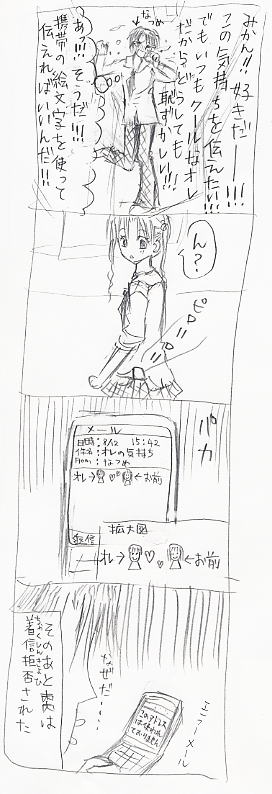 みかん!!好きだーー!!!
この気持ちを伝えたい!!!
でもいつもクールなオレ
だからどうしても
恥ずかしい!!!
なつめ
あっ!!!そうだ!!!
携帯の絵文字を使って
伝えればいいんだ!!
ん?
ピロリロリ
パカ
メール
日時:8/12 15:42
件名:オレの気持ち
From:なつめ
オレ→♡←お前
返信
拡大図
オレ→♡←お前
エラーメール
このアドレス
は使われ
ておりません
なぜだ……
そのあと実は
ちゃくしんきょひ
着信拒否された